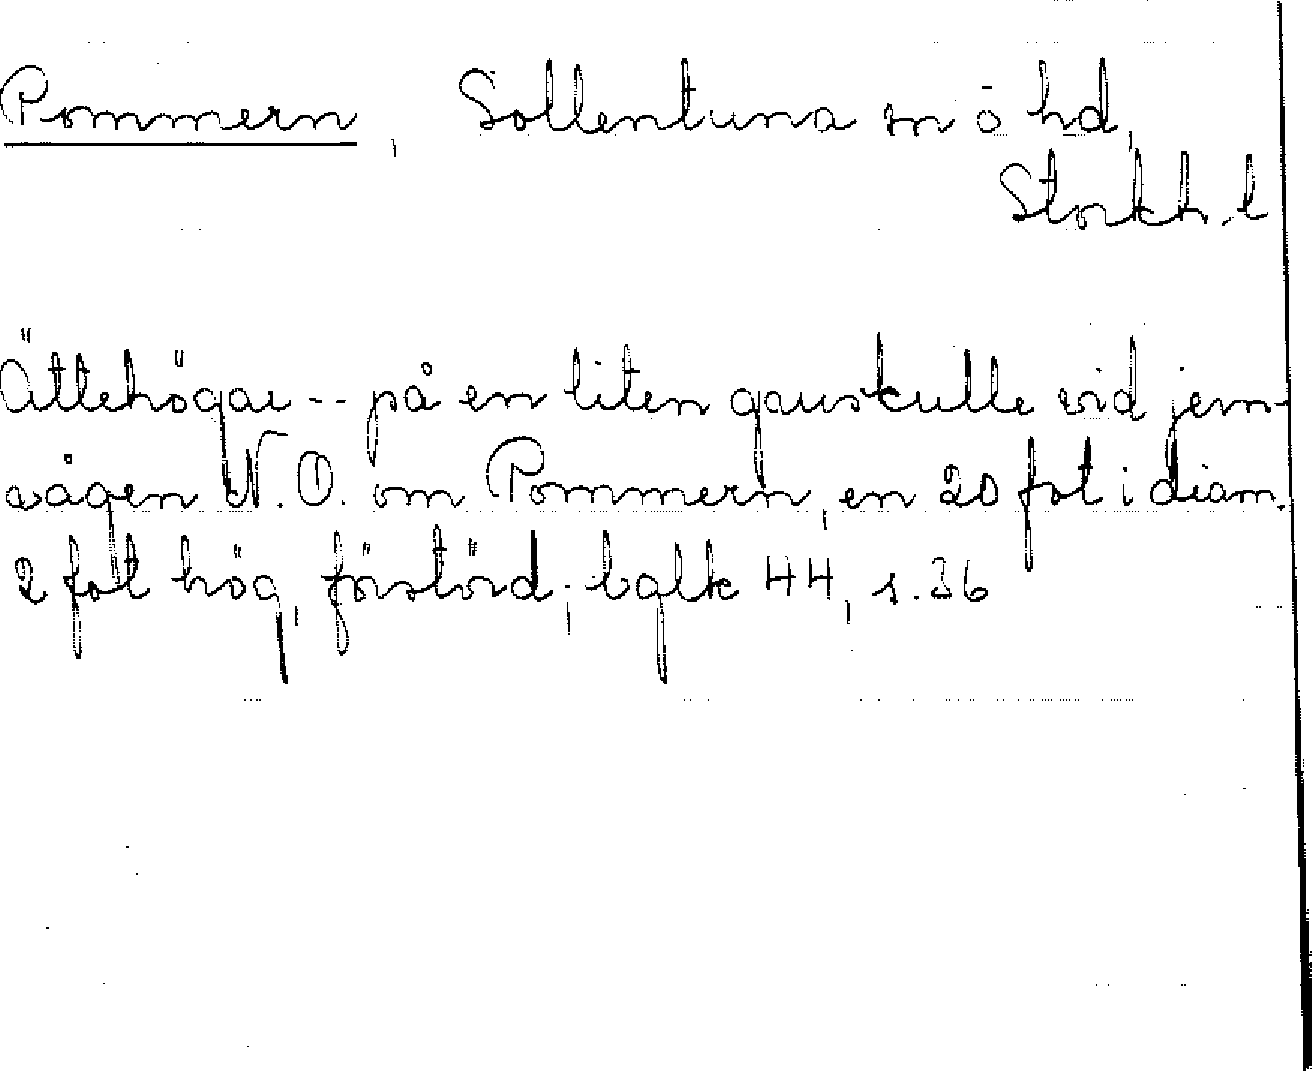 Pommern, Sollentuna sn o hd,
Stockh. l
Ättehögar -- på en liten gruskulle vid jern-
vägen N.O. om Pommern, en 20 fot i diam.
2 fot hög, förstörd; bglk 44, s. 36